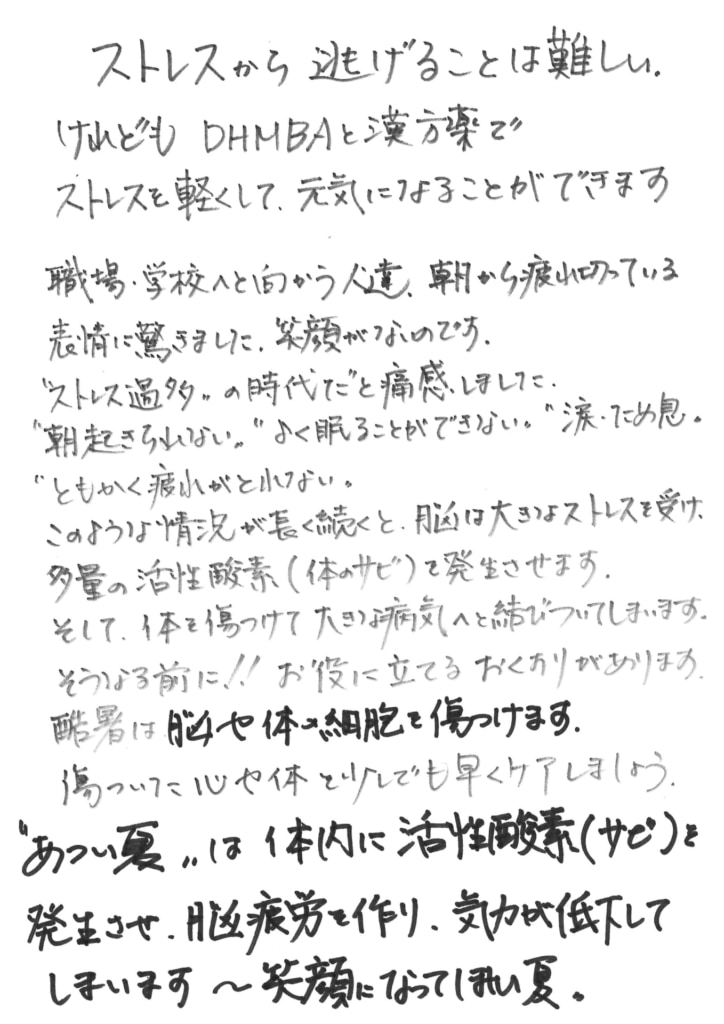 ストレスから逃げることは難しい.
けれども DHMBAと漢方薬で
ストレスを軽くして、元気になることができます
職場・学校へと向かう人達、朝から疲れ切っている
表情に驚きました、笑顔がないのです.
"ストレス過多"の時代だと痛感しました.
"朝起きられない。"よく眠ることができない。"涙・ため息。
"ともかく疲れがとれない。
このような情況が長く続くと、脳は大きなストレスを受け、
多量の活性酸素(体のサビ)を発生させます.
そして、体を傷つけて大きな病気へと結びついてしまいます.
そうなる前に!! お役に立てるおくすりがあります.
酷暑は脳や体の細胞を傷つけます.
傷ついた心や体を少しでも早くケアしましょう.
"あつい夏"は体内に活性酸素(サビ)を
発生させ、脳疲労を作り、気力が低下して
しまいます〜笑顔になってほしい夏。